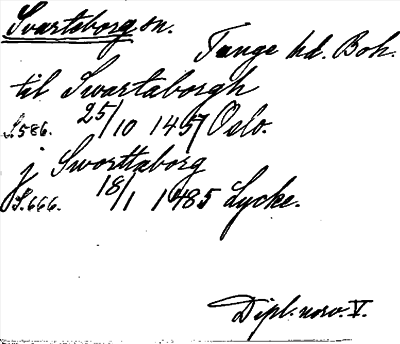 Svartsborg sn.
Tunge hd. Boh.
til Swartaborgh
S. 586. 25/10 1457 Oslo.
j Sworttaborg
S. 666. 18/1 1485 Lycke.
Dipl. norv. V.